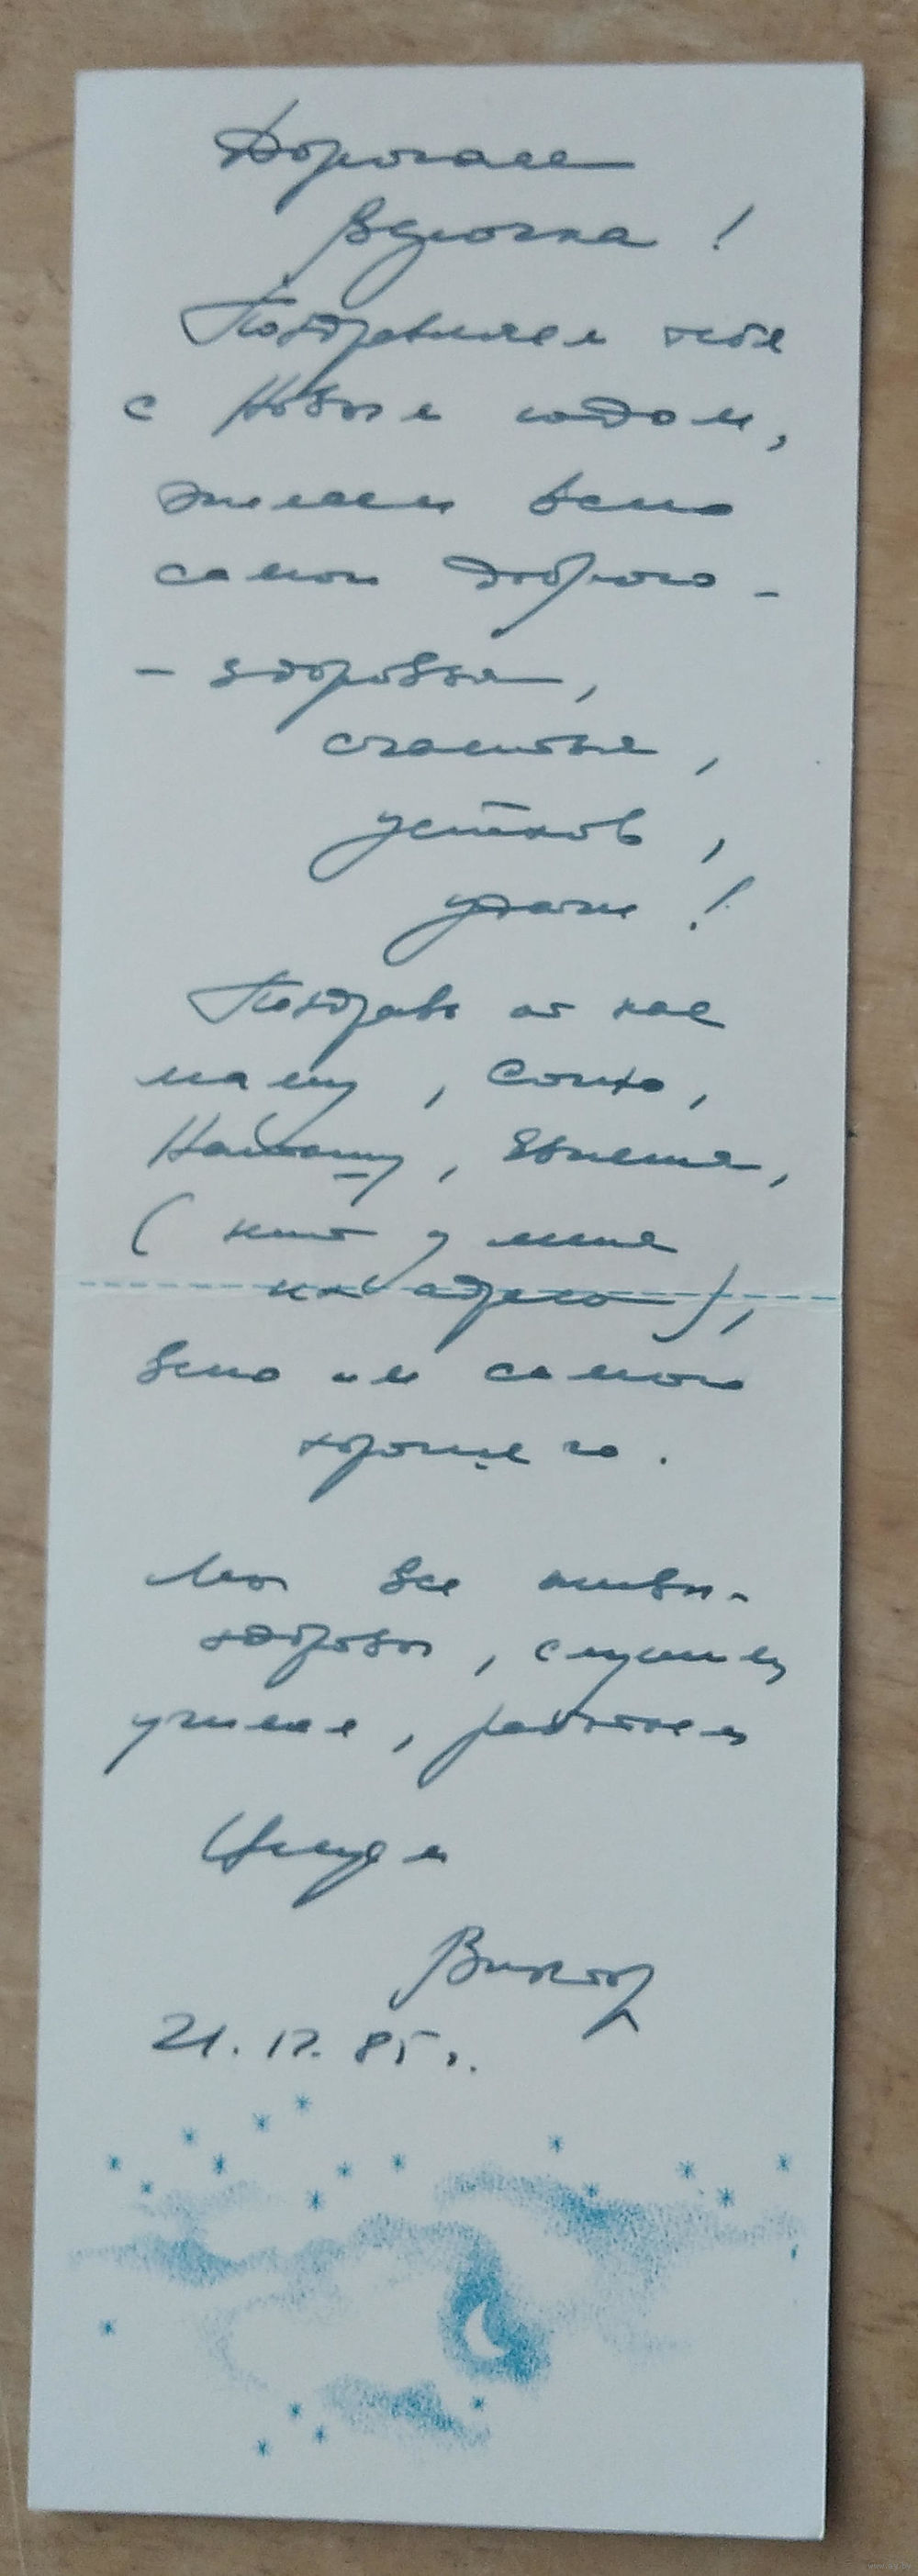 Дорогая
Поздравляем тебя
с Новым годом,
желаем всего
самого доброго -
- здоровья,
счастья,
успехов,
удачи!
Поздравь от нас
маму, Соню,
Наташу,
(нет у меня
их адреса),
всего им самого
хорошего.
Мы все живы-
здоровы, служим,
учимся, работаем
Целуем
Виктор
21.12.85г.